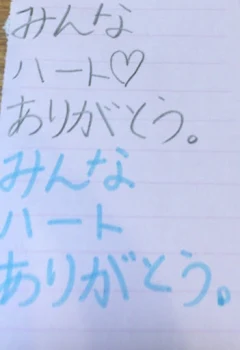 みんな
ハート♡
ありがとう。
みんな
ハート
ありがとう。